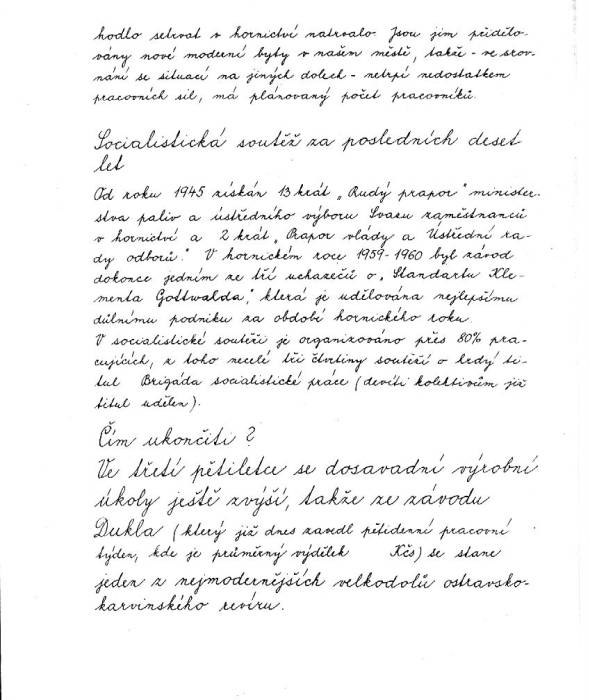 hodlo setrvat v hornictví natrvalo. Jsou jim přidělo-
vány nové moderní byty v našem městě, takže - ve srov-
nání se situací na jiných dolech - netrpí nedostatkem
pracovních sil, má plánovaný počet pracovníků.
Socialistická soutěž za posledních deset
let
Od roku 1945 získán 13 krát „Rudý prapor" minister-
stva paliv a ústředního výboru Svazu zaměstnanců
v hornictví a 2 krát „Prapor vlády a Ústřední ra-
dy odborů." V hornickém roce 1959-1960 byl závod
dokonce jedním ze tří uchazečů o „Standartu Kle-
menta Gottwalda," která je udělována nejlepšímu
důlnímu podniku za období hornického roku.
V socialistické soutěži je organizováno přes 80% pra-
cujících, z toho necelé tři čtvrtiny soutěží o hrdý ti-
tul Brigáda socialistické práce (devíti kolektivům již
titul udělen).
Čím ukončiti ?
Ve třetí pětiletce se dosavadní výrobní
úkoly ještě zvýší, takže ze závodu
Dukla (který již dnes zavedl pětidenní pracovní
týden, kde je průměrný výdělek Kčs) se stane
jeden z nejmodernějších velkodolů ostravsko-
karvinského revíru.